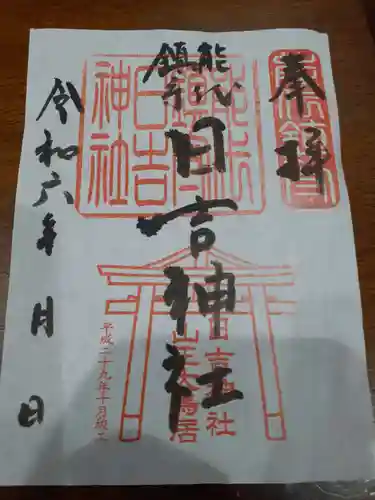 奉拝
能代
鎮守
日吉神社
令和六年 月 日
日吉神社
山王大鳥居
平成二十九年十月竣工